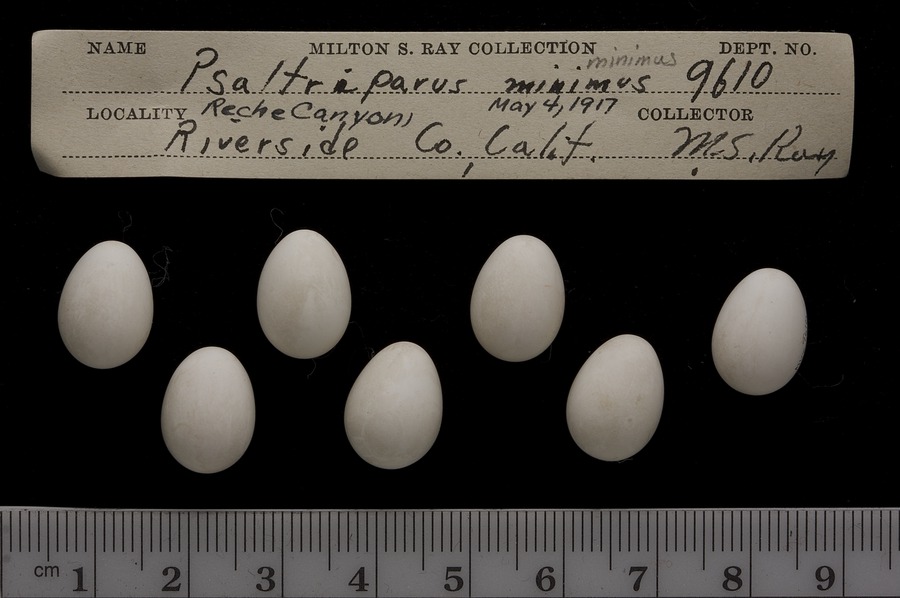 NAME MILTON S. RAY COLLECTION DEPT. NO.
minimus
Psaltriparus minimus 9610
LOCALITY Reche Canyon, May 4, 1917 COLLECTOR
Riverside Co., Calif. M.S. Ray
cm 1 2 3 4 5 6 7 8 9